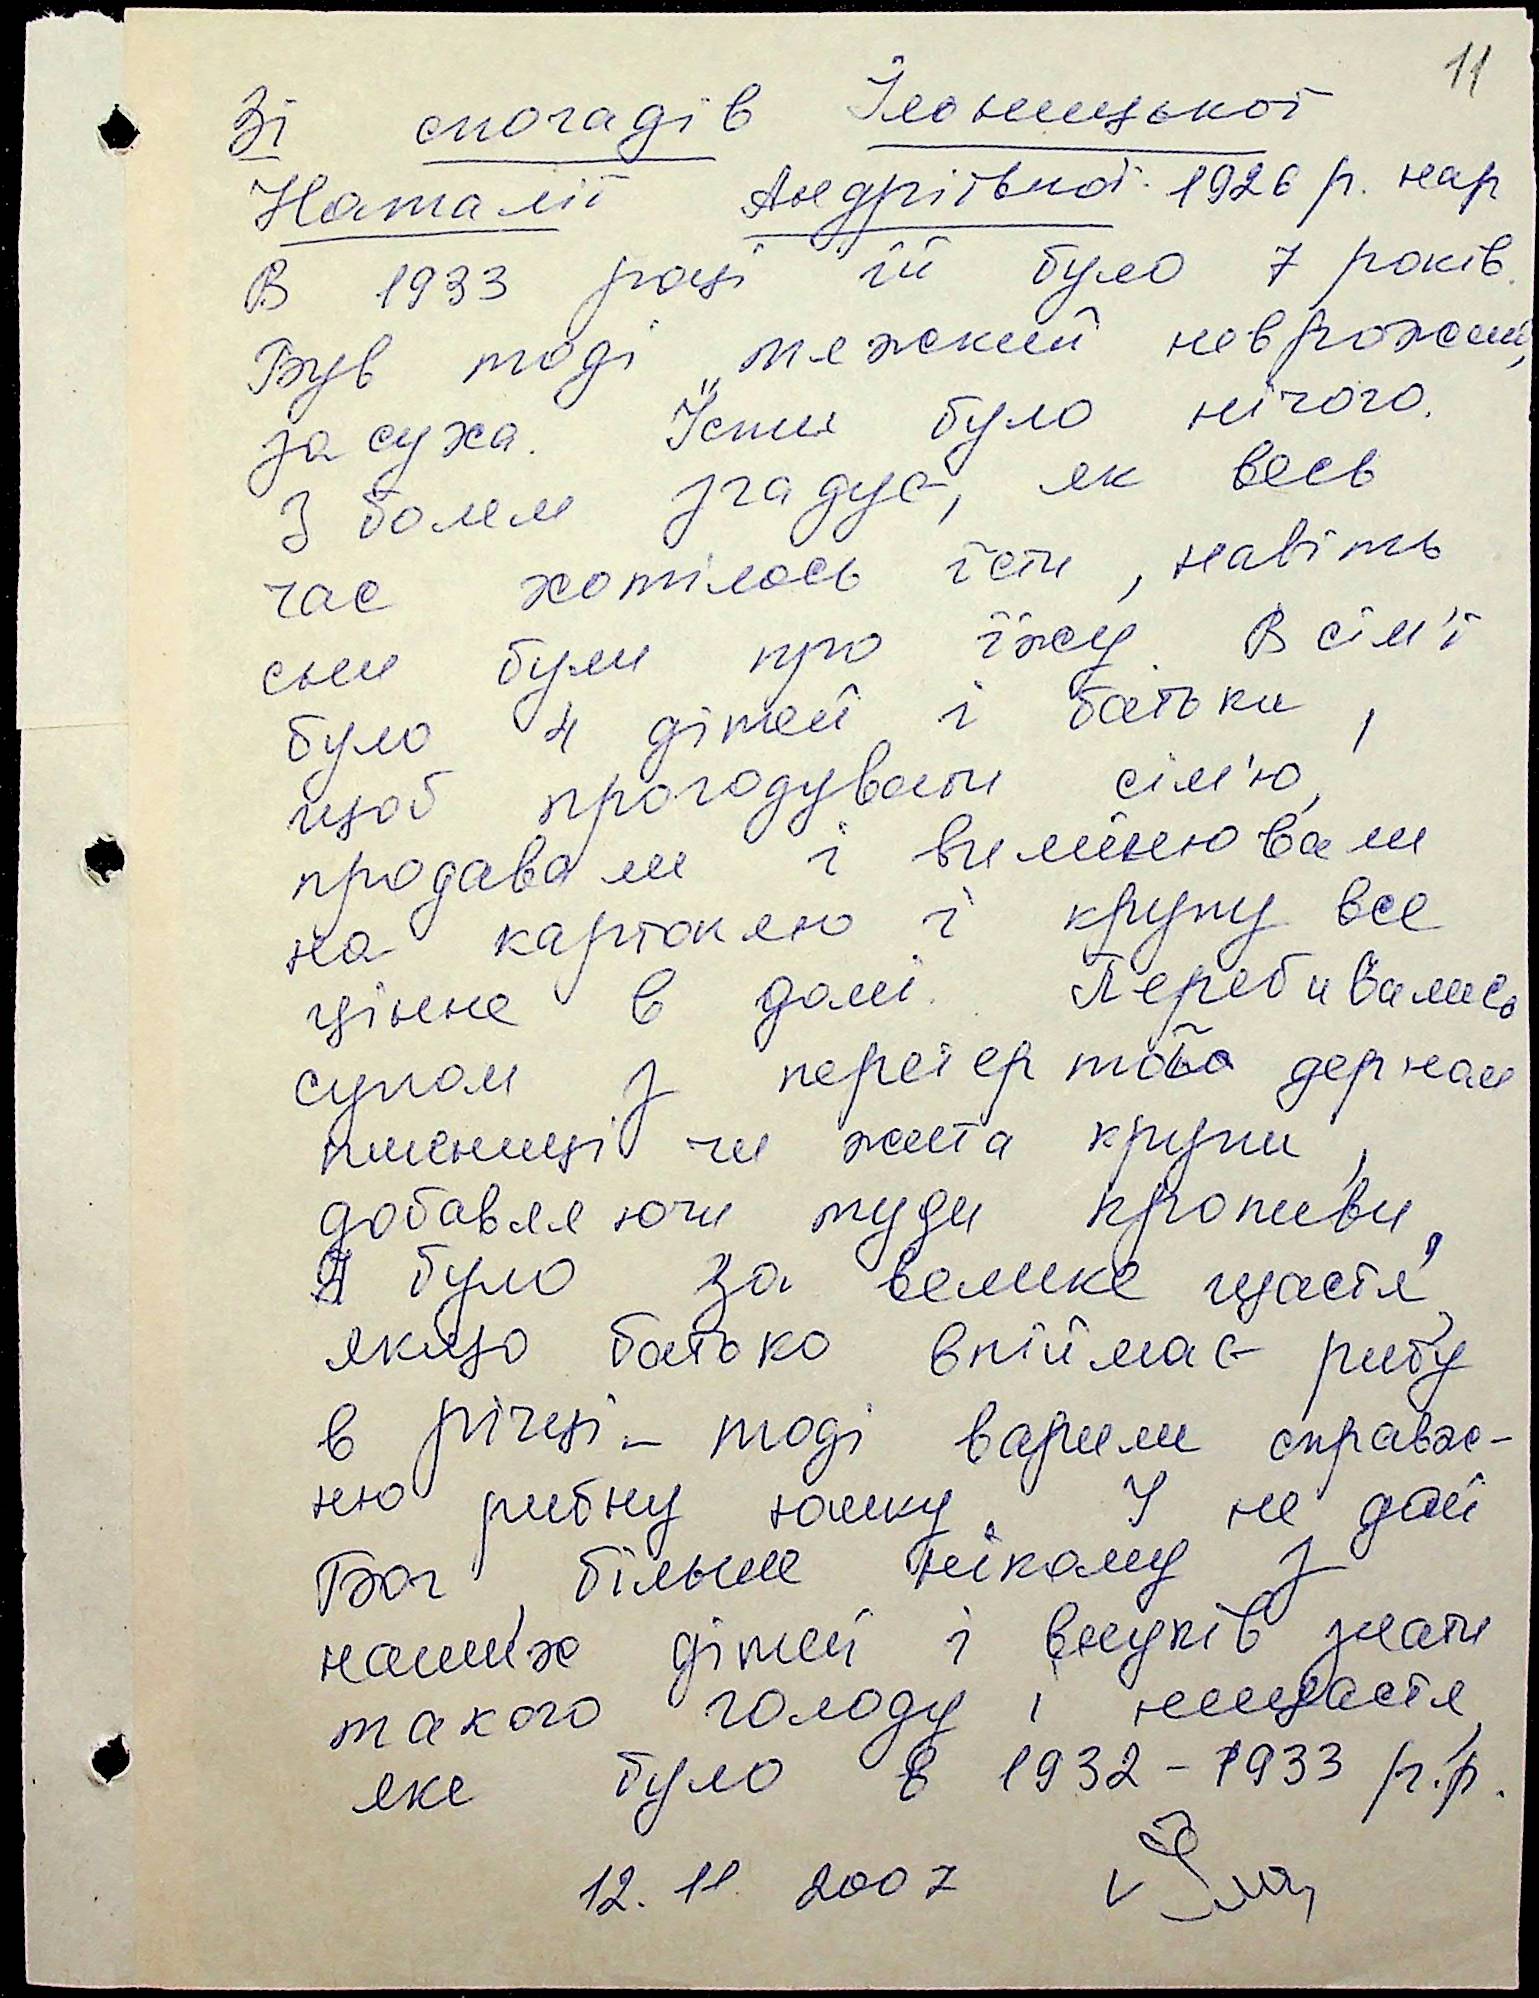 11
Зі спогадів Ільницької
Наталії Андріївної 1926 р. нар
В 1933 році їй було 7 років.
Був тоді тяжкий неврожай,
засуха. Їсти було нічого.
З болем згадує, як весь
час хотілось їсти, навіть
сни були про їжу. В сім'ї
було 4 дітей і батьки,
щоб прогодувати сім'ю,
продавали і вимінювали
на картоплю і крупу все
цінне в домі. Перебивались
супом з перетертої дерном
пшениці чи жита крупи,
добавляючи туди кропиви,
І було за велике щастя,
якщо батько впіймає рибу
в річці - тоді варили справж-
ню рибну юшку. І не дай
Бог більше нікому з
наших дітей і внуків знати
такого голоду і нещастя,
яке було в 1932 - 1933 р.р.
12. 11 2007